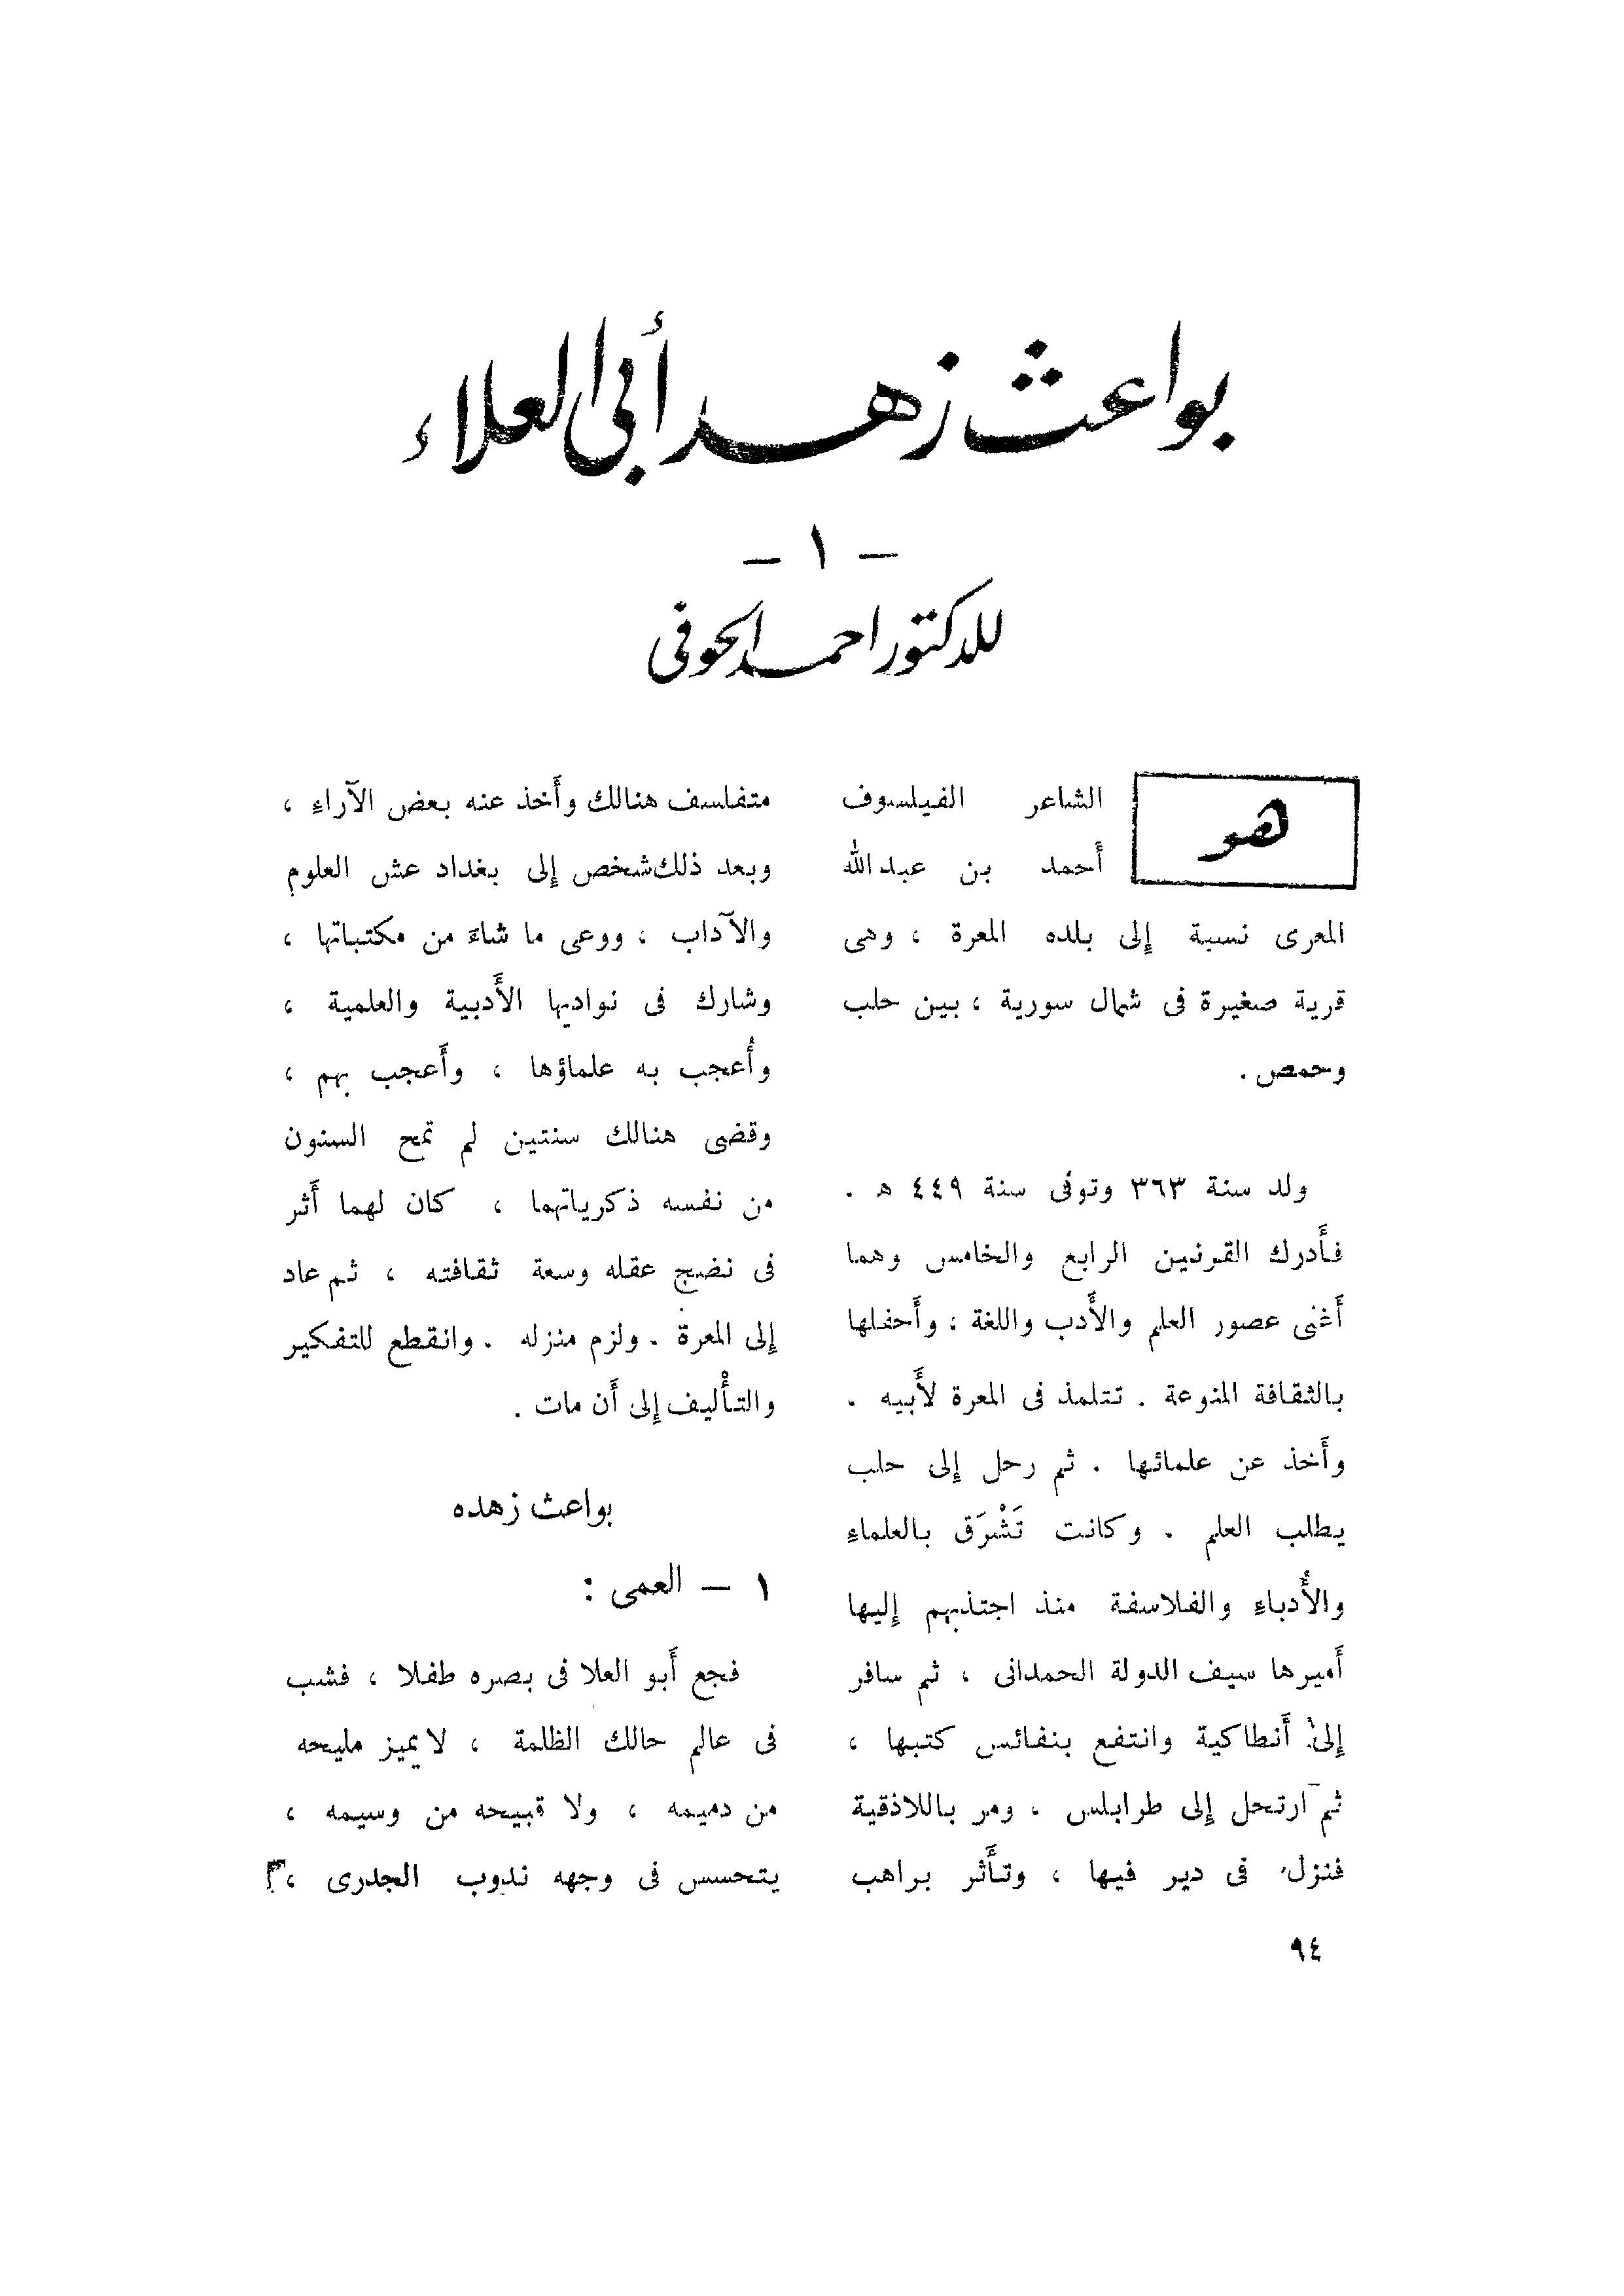 بواعث زهد أبى العلاء
- ١ -
للدكتور احمد الحوفى
هو
الشاعر الفيلسوف
أَحمد بن عبد الله
المعرى نسبة إلى بلده المعرة ، وهى
قرية صغيرة فى شمال سورية ، بين حلب
وحمص .
ولد سنة ٣٦٣ وتوفى سنة ٤٤٩ هـ .
فأَدرك القرنين الرابع والخامس وهما
أَغنى عصور العلم والأَدب واللغة ، وأَحفلها
بالثقافة المنوعة . تتلمذ فى المعرة لأَبيه .
وأَخذ عن علمائها . ثم رحل إلى حلب
يطلب العلم . وكانت تَشْرَق بالعلماءِ
والأُدباءِ والفلاسفة منذ اجتذبهم إليها
أَميرها سيف الدولة الحمدانى ، ثم سافر
إلى أَنطاكية وانتفع بنفائس كتبها ،
ثم ارتحل إلى طرابلس ، ومر باللاذقية
فنزل فى دير فيها ، وتأَثر براهب
متفلسف هنالك وأَخذ عنه بعض الآراءِ ،
وبعد ذلك شخص إلى بغداد عش العلوم
والآداب ، ووعى ما شاءَ من مكتباتها ،
وشارك فى نواديها الأَدبية والعلمية ،
وأُعجب به علماؤها ، وأَعجب بهم ،
وقضى هنالك سنتين لم تمح السنون
من نفسه ذكرياتهما ، كان لهما أَثر
فى نضج عقله وسعة ثقافته ، ثم عاد
إلى المعرة . ولزم منزله . وانقطع للتفكير
والتأْليف إلى أَن مات .
بواعث زهده
١ - العمى :
فجع أَبو العلا فى بصره طفلا ، فشب
فى عالم حالك الظلمة ، لا يميز مليحه
من دميمه ، ولا قبيحه من وسيمه ،
يتحسس فى وجهه ندوب الجدرى ،
٩٤